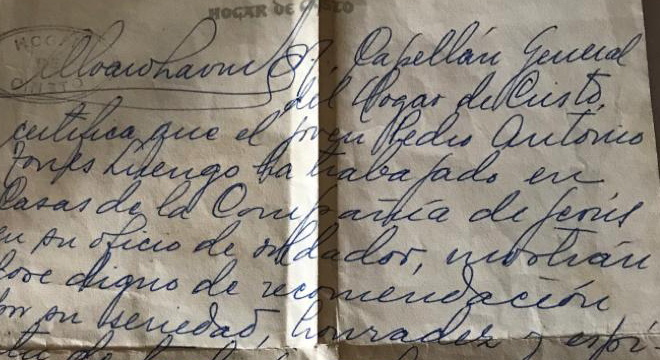 HOGAR DE CRISTO
HOGAR DE CRISTO
Alvaro Lavín S.J., Capellán General
del Hogar de Cristo,
certifica que el joven Pedro Antonio
ha trabajado en
Casas de la Compañía de Jesús
en su oficio de soldador, mostrán
dose digno de recomendación
por su seriedad, honradez y espí-